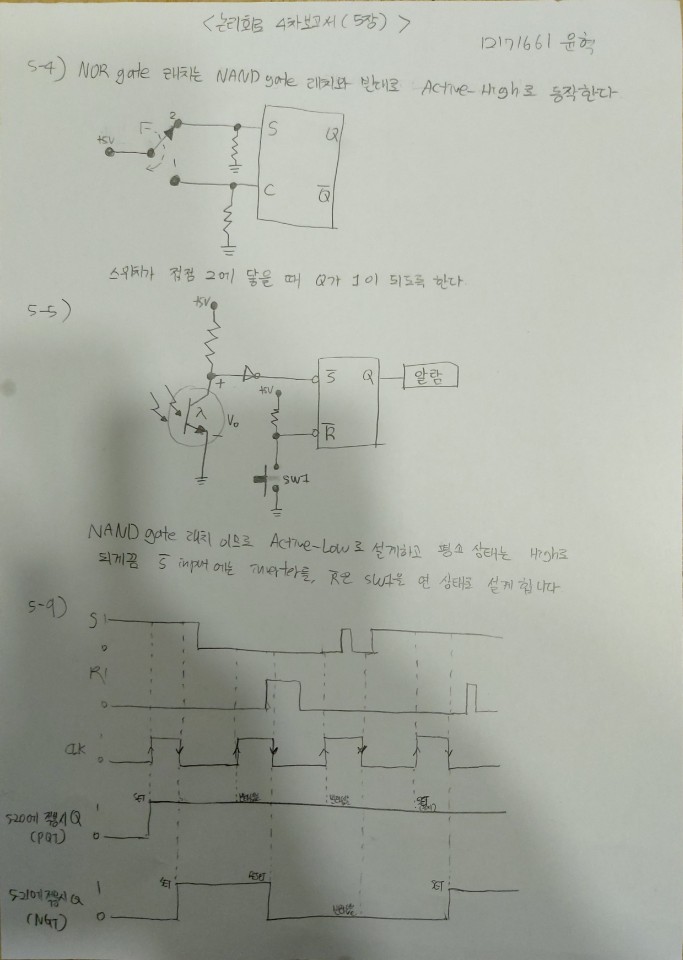 <논리회로 4차보고서(5장)>
12171661 윤혁
5-4) NOR gate 래치는 NAND gate 래치와 반대로 Active-High로 동작한다
+5V
2
1
S Q
C Q̅
스위치가 접점 2에 닿을 때 Q가 1이 되도록 한다
5-5)
+5V
+ λ V₀ −
+5V
S̅ Q 알람
R̅
SW1
NAND gate 래치 이므로 Active-Low로 설계하고 평소 상태는 High로
되게끔 S̅ input에는 inverter를, R̅은 SW1을 연 상태로 설계합니다
5-9)
S 1
0
R 1
0
CLK 1
0
SET 변화없음 변화없음 SET
520에 적용시 Q 1
(PGT) 0
SET RESET 변화없음 SET
521에 적용시 Q 1
(NGT) 0